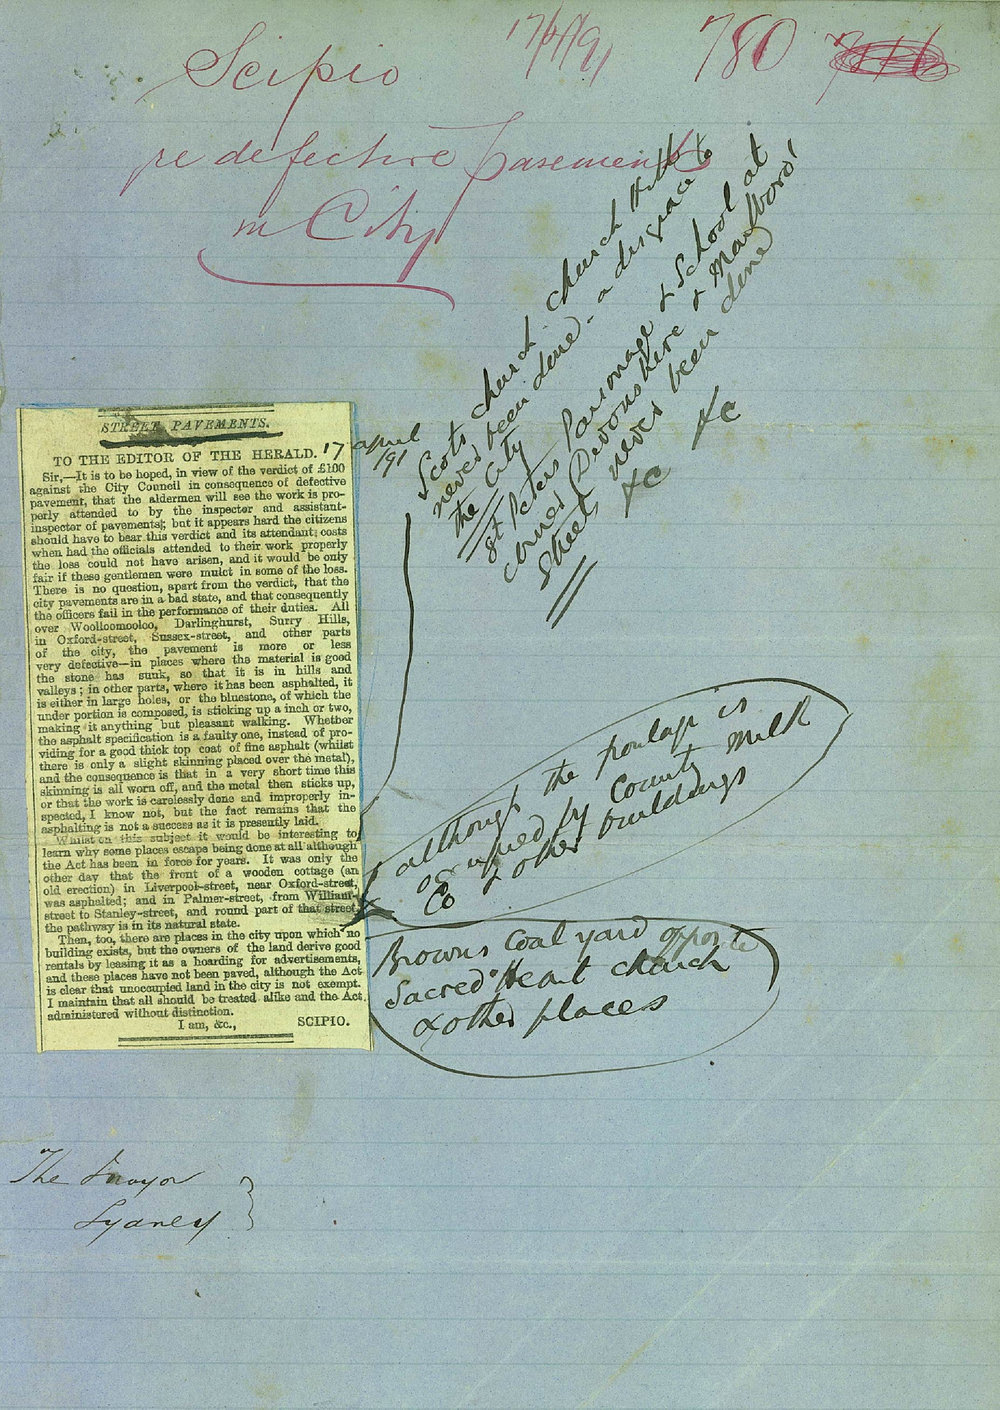 Scipio
17/4/91
780
re defective Pasements
in City
Scots church church Hill
never been done - a disgrace to
the City
St Peters Parsonage & School at
corner Devonshire & Marlboro'
Street never been done
&c &c
STREET PAVEMENTS.
17 April
/91
TO THE EDITOR OF THE HERALD.
Sir,—It is to be hoped, in view of the verdict of £100
against the City Council in consequence of defective
pavement, that the aldermen will see the work is pro-
perly attended to by the inspector and assistant-
inspector of pavements; but it appears hard the citizens
should have to bear this verdict and its attendant costs
when had the officials attended to their work properly
the loss could not have arisen, and it would be only
fair if these gentlemen were mulct in some of the loss.
There is no question, apart from the verdict, that the
city pavements are in a bad state, and that consequently
the officers fail in the performance of their duties. All
over Woolloomooloo, Darlinghurst, Surry Hills,
in Oxford-street, Sussex-street, and other parts
of the city, the pavement is more or less
very defective—in places where the material is good
the stone has sunk, so that it is in hills and
valleys; in other parts, where it has been asphalted, it
is either in large holes, or the bluestone, of which the
under portion is composed, is sticking up a inch or two,
making it anything but pleasant walking. Whether
the asphalt specification is a faulty one, instead of pro-
viding for a good thick top coat of fine asphalt (whilst
there is only a slight skinning placed over the metal),
and the consequence is that in a very short time this
skinning is all worn off, and the metal then sticks up,
or that the work is carelessly done and improperly in-
spected, I know not, but the fact remains that the
asphalting is not a success as it is presently laid.
Whilst on this subject it would be interesting to
learn why some places escape being done at all although
the Act has been in force for years. It was only the
other day that the front of a wooden cottage (an
old erection) in Liverpool-street, near Oxford-street,
was asphalted; and in Palmer-street, from William-
street to Stanley-street, and round part of that street,
the pathway is in its natural state.
Then, too, there are places in the city upon which no
building exists, but the owners of the land derive good
rentals by leasing it as a hoarding for advertisements,
and these places have not been paved, although the Act
is clear that unoccupied land in the city is not exempt.
I maintain that all should be treated alike and the Act
administered without distinction.
I am, &c., SCIPIO.
although the frontage is
occupied by County Milk
Co & other buildings
Browns Coal yard opposite
Sacred Heart church
& other places
The Mayor
Sydney